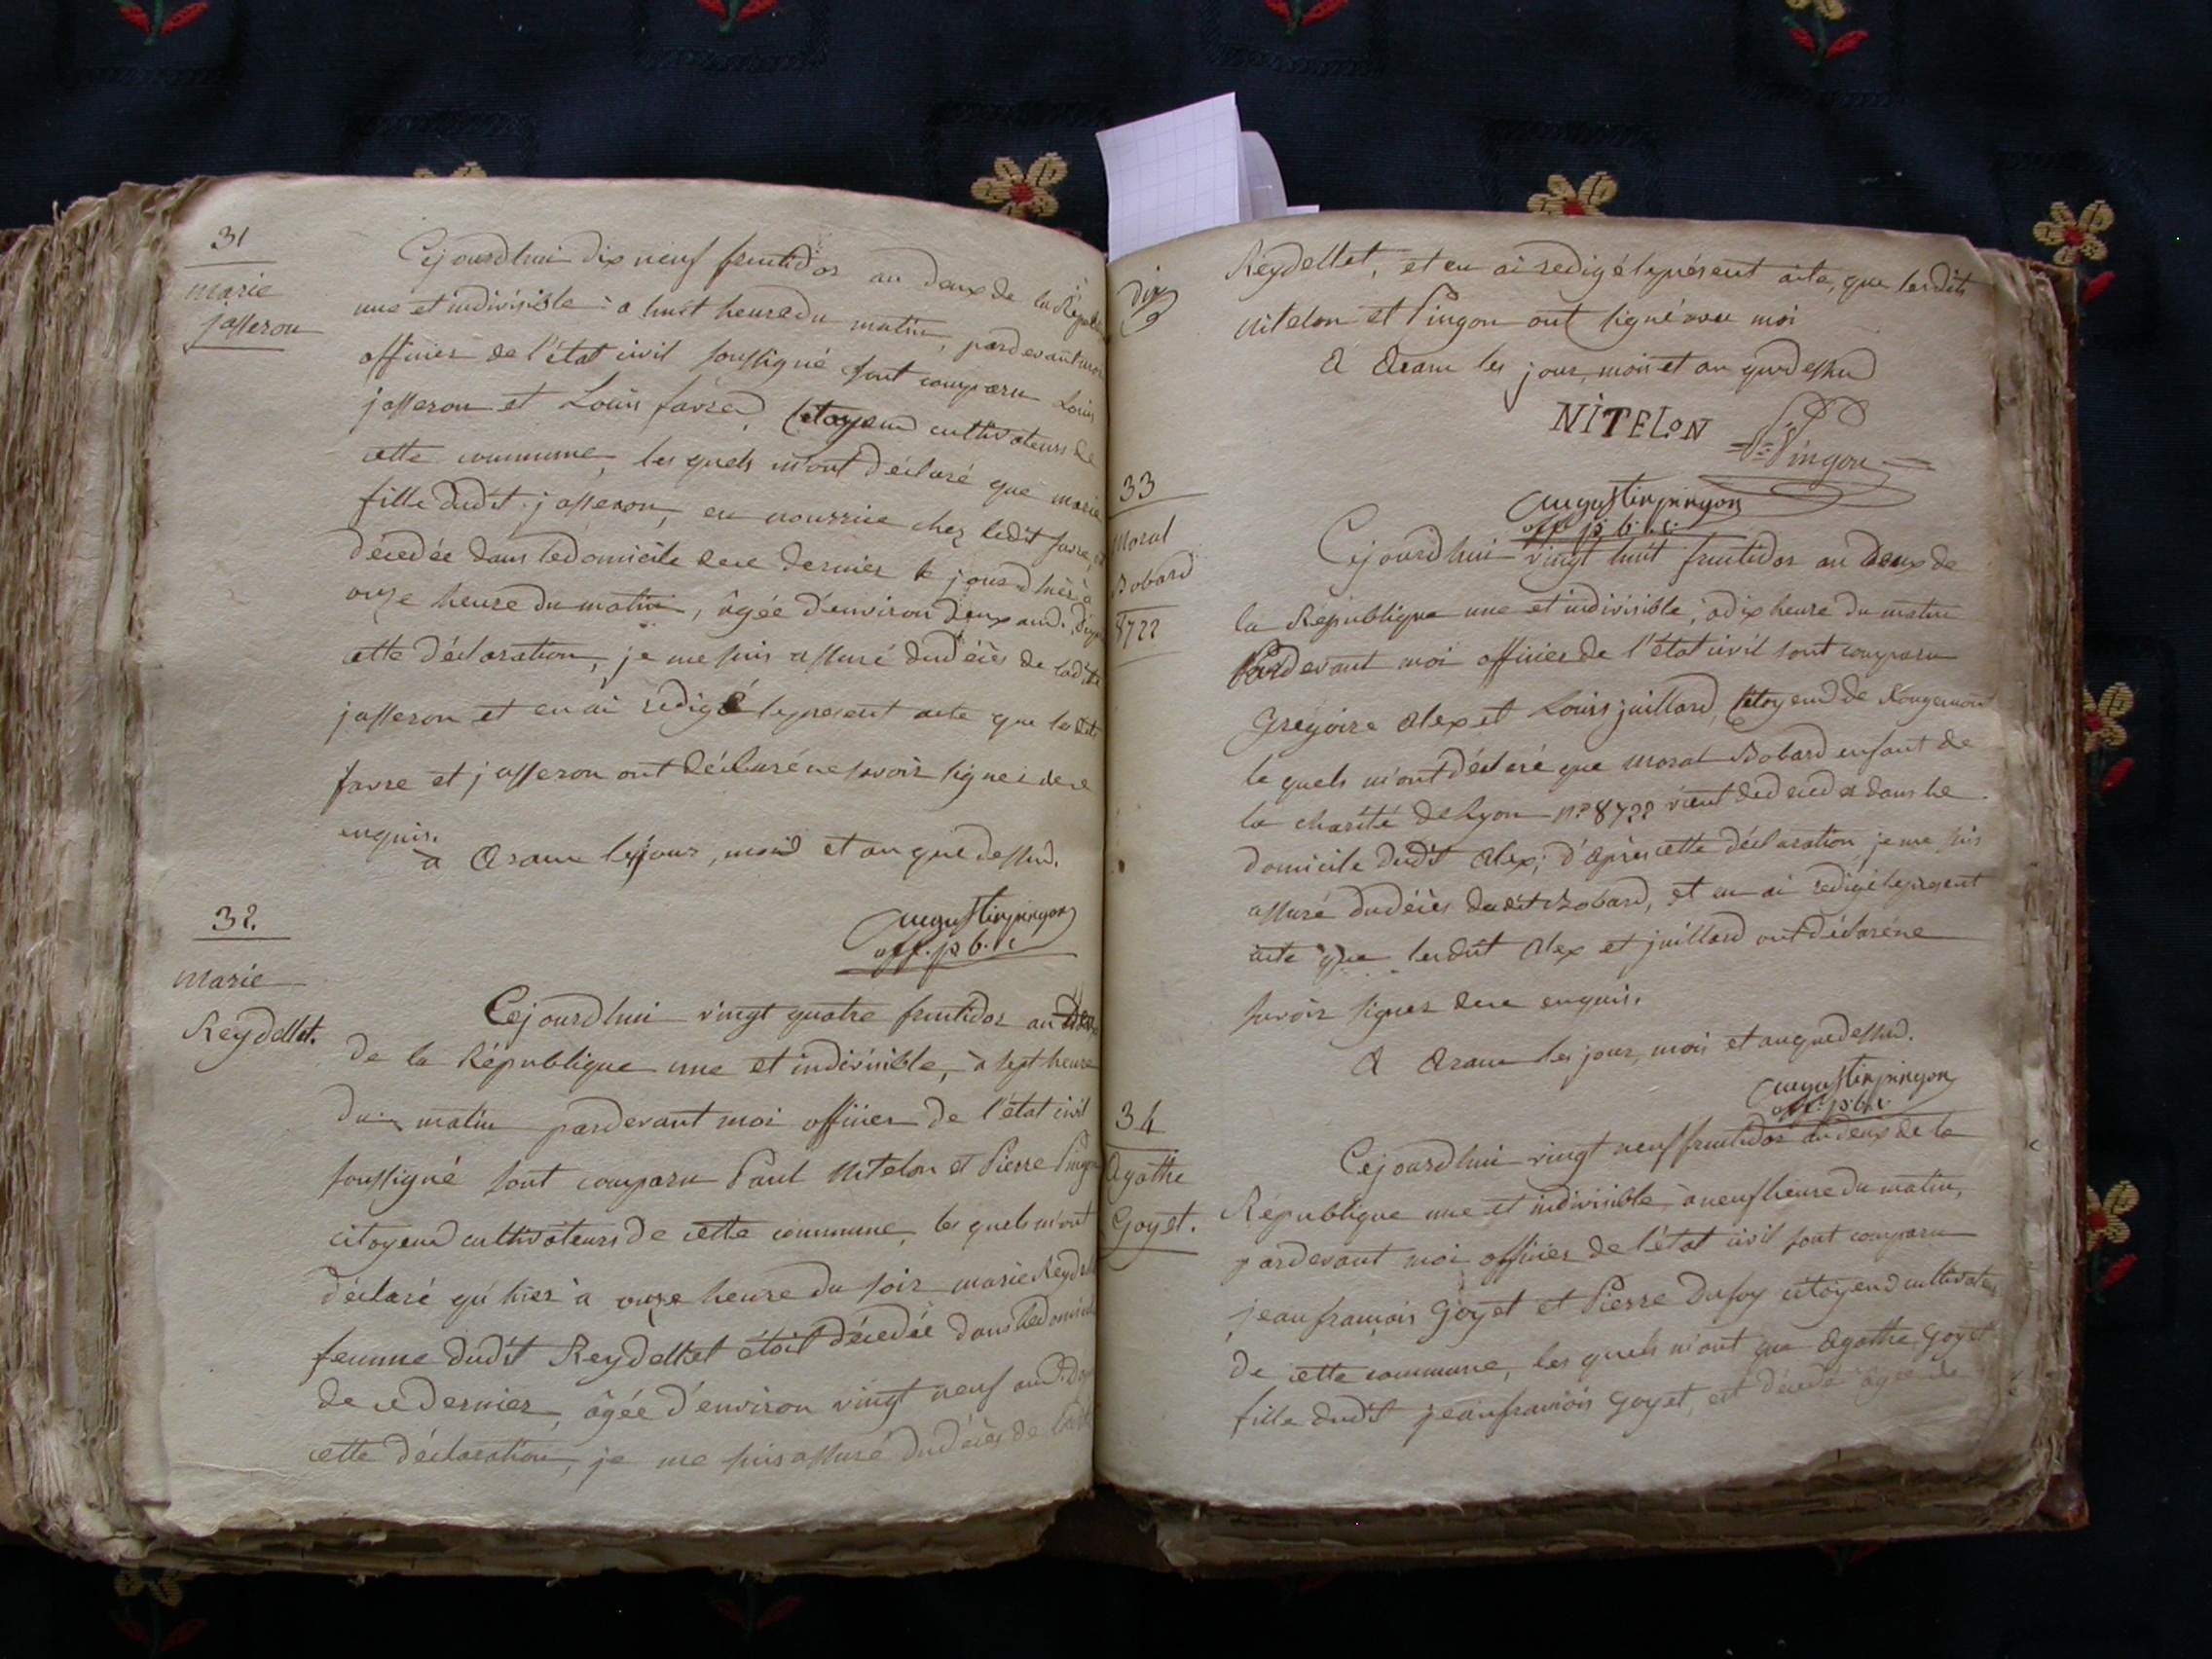 31
marie
jasseron
Cejourdhui dix neuf fructidor an deux de la Répub
une et indivisible à huit heure du matin, pardevant moi
officier de l'état civil soussigné sont comparu Louis
jasseron et Louis favre, Citoyens cultivateurs de
cette commune, les quels m'ont déclaré que marie
fille dudit jasseron, en nourrice chez ledit favre,
décedée dans le domicile de ce dernier le jourdhier à
onze heure du matin, âgée d'environ deux ans.
cette déclaration, je me suis assuré du décès de ladite
jasseron et en ai rédigé le present acte que lesdits
favre et jasseron ont déclaré ne savoir signer de ce
enquis.
à Aranc les jour, mois et an que dessus.
augustin pingon
off. p. b. c
32.
marie
Reydellet.
Cejourdhui vingt quatre fructidor an deux
de la République une et indivisible, à sept heure
du matin pardevant moi officier de l'état civil
soussigné sont comparu Paul Nitelon et Pierre Pingon
citoyens cultivateurs de cette commune, les quels m'ont
déclaré qu'hier à onze heure du soir marie Reydellet
femme dudit Reydellet étoit décedée dans le domicile
de ce dernier, âgée d'environ vingt neuf ans. D'après
cette déclaration, je me suis assuré du décès de ladite
dix
Reydellet, et en ai redigé le présent acte, que lesdits
Nitelon et Pingon ont signé avec moi
à Aranc les jour, mois et an que dessus
NITELON Pingon
augustin pingon
off p. b. c.
33
Moral
Bobard
8722
Cejourdhui vingt huit fructidor an deux de
la République une et indivisible, à dix heure du matin
Pardevant moi officier de l'état civil sont comparu
Gregoire Alex et Louis juillard, Citoyens de Rougemont
le quels m'ont déclaré que Moral Bobard enfant de
la charité de Lyon n.° 8722 vient de déceder dans le
domicile dudit Alex; d'après cette déclaration je me suis
assuré du décès dudit Bobard, et en ai redigé le present
acte que lesdit Alex et juillard ont déclaré ne
savoir signer de ce enquis.
A Aranc les jour, mois et an que dessus.
augustin pingon
off. p. b. c.
34
Agathe
Goyet.
Cejourdhui vingt neuf fructidor an deux de la
République une et indivisible à neuf heure du matin,
pardevant moi officier de l'état civil sont comparu
jean françois Goyet et Pierre Dufoy citoyens cultivateurs
de cette commune, les quels m'ont que Agathe Goyet
fille dudit jean françois Goyet, est décedée âgée de